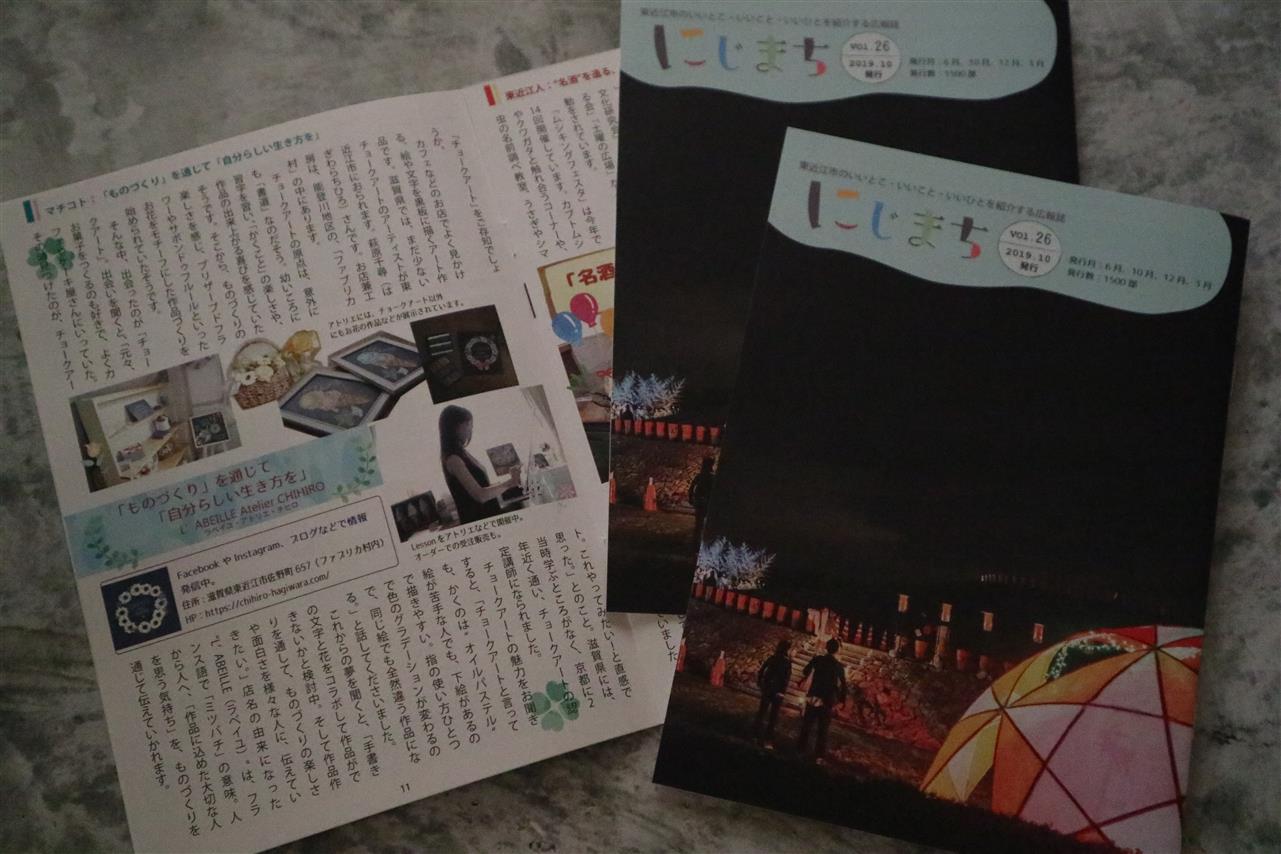 東近江市のいいとこ・いいこと・いいひとを紹介する広報誌
にじまち
vol.26
2019.10
発行
発行月：6月、10月、12月、3月
発行数：1500部
東近江市のいいとこ・いいこと・いいひとを紹介する広報誌
にじまち
vol.26
2019.10
発行
発行月：6月、10月、12月、3月
発行数：1500部
東近江人：“名酒”を造る、
文化研究会」「土曜の広場」が
動をされています。
「ムシキングフェスタ」は今年で
14回開催しています。カブトムシ
やクワガタと触れ合うコーナーや、
虫の名前調べ教室、うさぎやシマ
「名酒
マチコト：「ものづくり」を通じて「自分らしい生き方を」
「チョークアート」をご存知でしょ
うか。
カフェなどのお店でよく見かけ
る、絵や文字を黒板に描くアート作
品です。滋賀県では、まだ少ない
チョークアートのアーティストが東
近江市におられます。萩原千尋（は
ぎわらちひろ）さんです。お店兼工
房は、能登川地区の、「ファブリカ
村」の中にあります。
チョークアートの原点は、意外に
も「書道」なのだそう。幼いころに
習字を習い、「かくこと」の楽しさや、
作品の出来上がる喜びを感じていた
そうです。そこから、ものづくりの
楽しさを感じ、プリザーブドフラ
ワーやサボンドゥフルールといった
お花をモチーフにした作品づくりを
始められていたそうです。
そんな中、出会ったのが「チョー
クアート」。出会いを聞くと、「元々、
お菓子をつくるのも好きで、よくカ
キ屋さんにいっていた。
けたのが、チョークアー
アトリエには、チョークアート以外
にもお花の作品などが展示されています。
「ものづくり」を通じて
「自分らしい生き方を」
L' ABEILLE Atelier CHIHIRO
ラベイユ・アトリエ・チヒロ
Lessonをアトリエなどで開催中。
オーダーでの受注販売も。
Facebook や Instagram、ブログなどで情報
発信中。
住所：滋賀県東近江市佐野町 657（ファブリカ村内）
HP：https://chihiro-hagiwara.com/
ト。これやってみたい！」と直感で
思った。」とのこと。滋賀県には、
当時学ぶところがなく、京都に2
年近く通い、チョークアートの認
定講師になられました。
チョークアートの魅力をお聞き
すると、「チョークアートと言って
も、かくのは“オイルパステル”
絵が苦手な人でも、下絵があるの
で描きやすい。指の使い方ひとつ
で色のグラデーションが変わるの
で、同じ絵でも全然違う作品にな
る。」と話してくださいました。
これからの夢を聞くと、「手書き
の文字と花をコラボして作品がで
きないかと検討中。そして作品作
りを通して、ものづくりの楽しさ
や面白さを様々な人に、伝えてい
きたい。」店名の由来になった
"L' ABEILLE（ラベイユ）"は、フラ
ンス語で「ミツバチ」の意味。人
から人へ、「作品に込めた大切な人
を思う気持ち」を、ものづくりを
通じて伝えていかれます。
いました
11